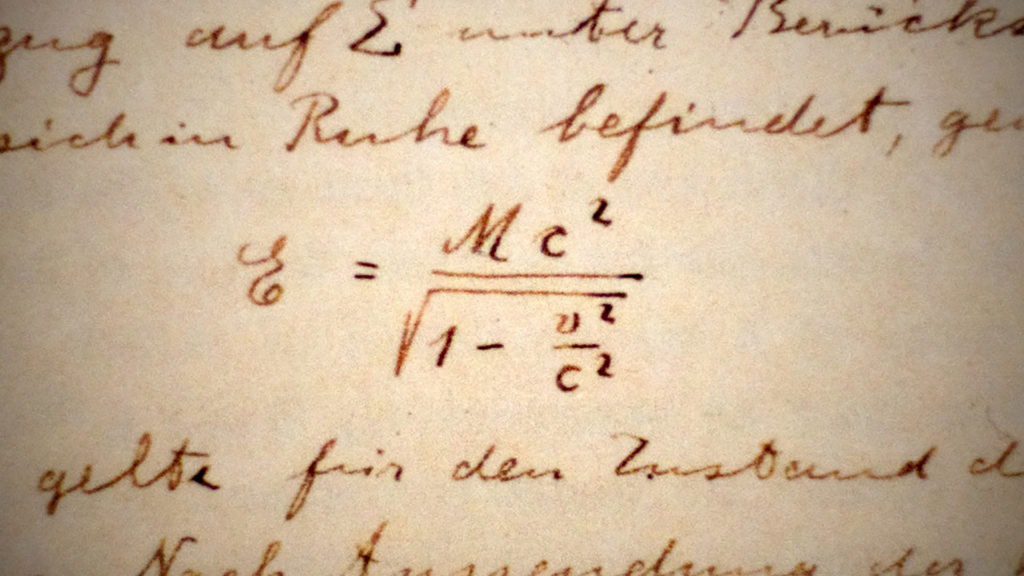 zug auf E unter Berücks
sich in Ruhe befindet, gen
E = Mc² / √(1 - v²/c²)
gelte für den Zustand d
Nach Aussendung der